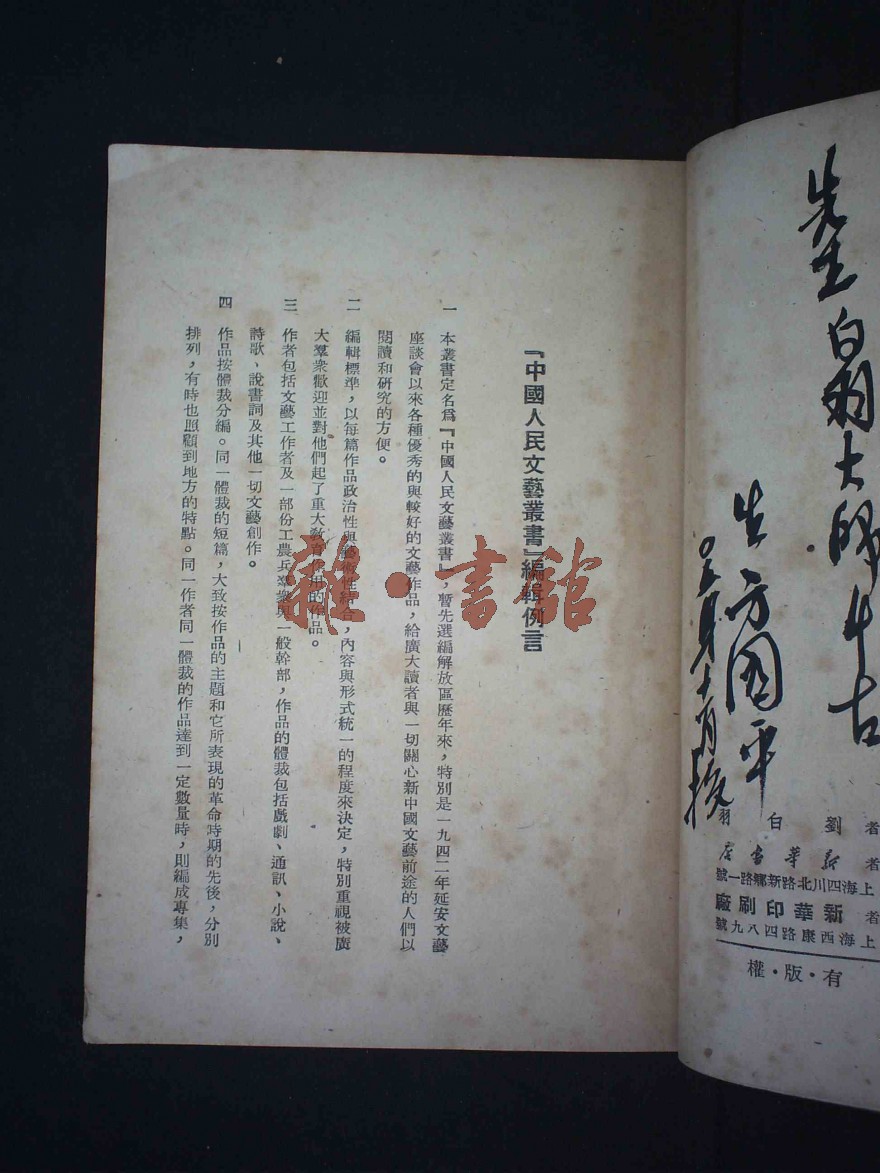 『中國人民文藝叢書』編輯例言
一 本叢書定名爲『中國人民文藝叢書』，暫先選編解放區歷年來，特別是一九四二年延安文藝
座談會以來各種優秀的與較好的文藝作品，給廣大讀者與一切關心新中國文藝前途的人們以
閱讀和研究的方便。
二 編輯標準，以每篇作品政治性與藝術性結合，內容與形式統一的程度來決定，特別重視被廣
大羣衆歡迎並對他們起了重大教育作用的作品。
三 作者包括文藝工作者及一部份工農兵羣衆與一般幹部，作品的體裁包括戲劇、通訊、小說、
詩歌、說書詞及其他一切文藝創作。
四 作品按體裁分編。同一體裁的短篇，大致按作品的主題和它所表現的革命時期的先後，分別
排列，有時也照顧到地方的特點。同一作者同一體裁的作品達到一定數量時，則編成專集，
雜·書館
先生白羽大師
生方國平
者 劉白羽
者 新華書店
上海四川北路新鄉路一號
者 新華印刷廠
上海西康路四八九號
有·版·權